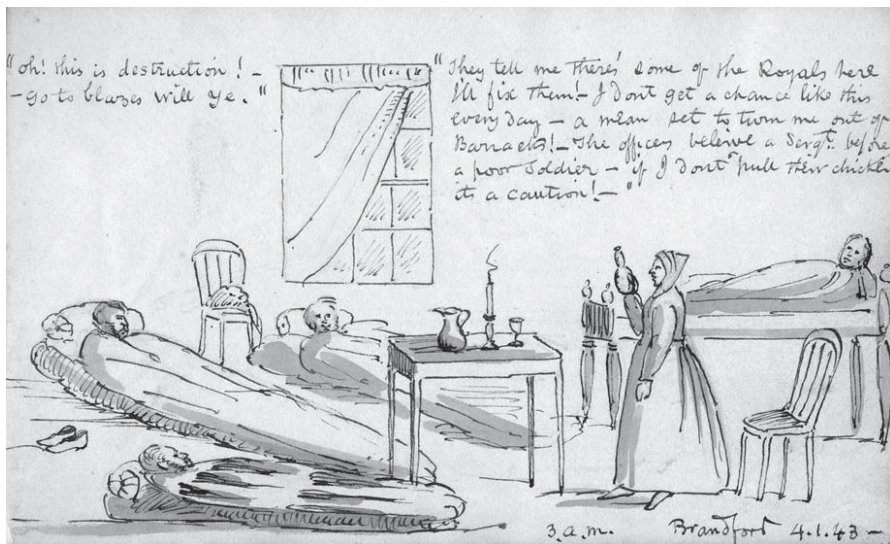 "oh! this is destruction! -
- go to blazes will ye."
"They tell me there's some of the Royals here
I'll fix them! - I dont get a chance like this
every day - a mean set to turn me out of
Barracks! - The officers beleive a Sergt. before
a poor Soldier - if I dont pull their chicken
its a caution! - "
3.a.m. Brandford 4.1.43 -